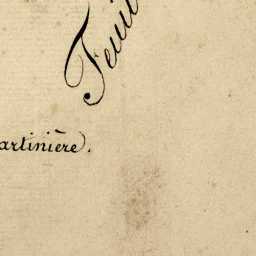 Feuil
artinière).